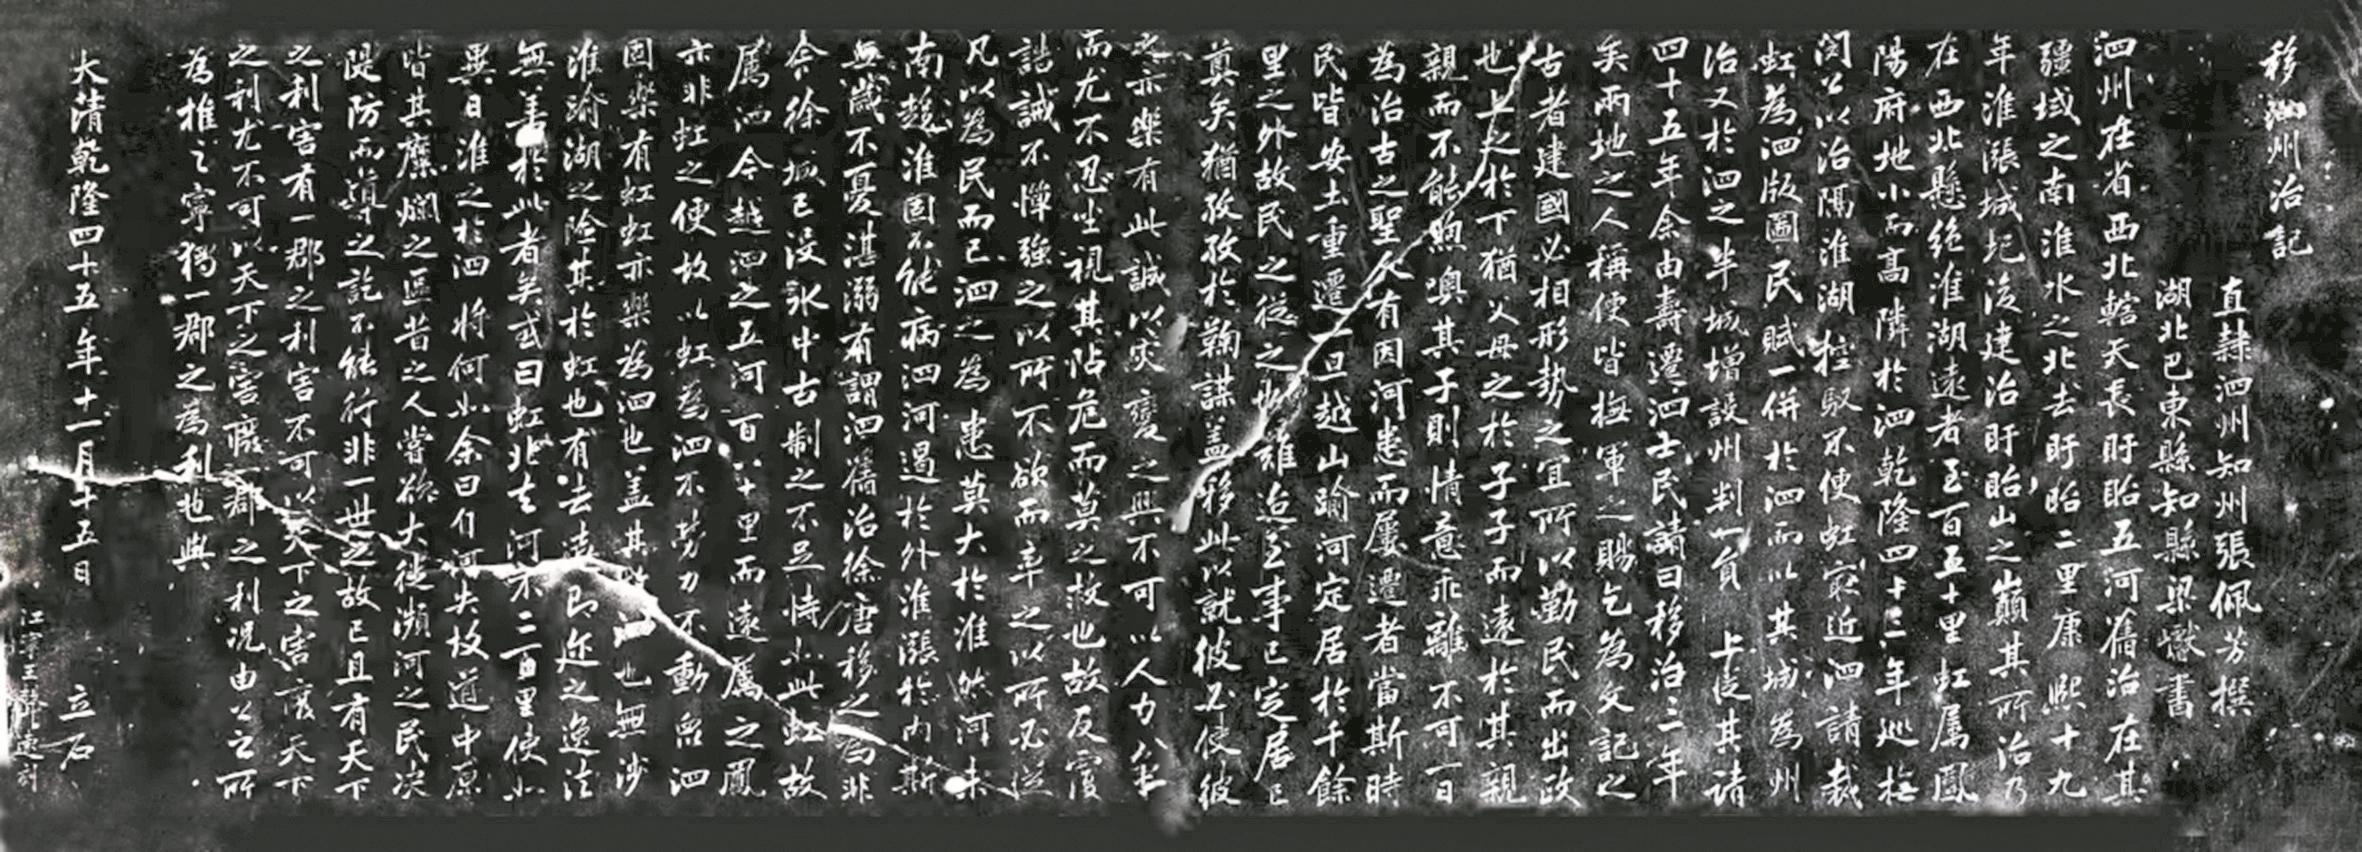 移泗州治記
直隸泗州知州張佩芳撰
湖北巴東縣知縣梁巘書
泗州在省西北轄天長盱眙五河舊治在其
疆域之南淮水之北去盱眙二里康熙十九
年淮漲城圮後建治盱眙山之巔其所治乃
在西北懸絕淮湖遠者至百五十里虹屬鳳
陽府地小而高隣於泗乾隆四十二年巡撫
閔公以治隔淮湖控馭不便虹寂近泗請裁
虹為泗版圖民賦一併於泗而以其城為州
治又於泗之半城增設州判一員 上從其請
四十五年余由壽遷泗士民請曰移治三年
矣兩地之人稱便皆撫軍之賜乞為文記之
古者建國必相形勢之宜所以勤民而出政
也上之於下猶父母之於子子而遠於其親
親而不能煦嫗其子則情意乖離不可一日
為治古之聖人有因河患而屢遷者當斯時
民皆安土重遷一旦越山踰河定居於千餘
里之外故民之從之也難迨至事已定居已
奠矣猶孜孜於鞠謀蓋移此以就彼必使彼
之亦樂有此誠以災變之興不可以人力爭
而尤不忍坐視其阽危而莫之救也故反覆
誥誡不憚強之以所不欲而率之以所必從
凡以為民而已泗之為患莫大於淮然河未
南趨淮固不能病泗河遏於外淮漲於內斯
無歲不憂湛溺有謂泗舊治徐唐移之為非
令徐城已浸水中古制之不足恃如此虹故
屬泗今越泗之五河百八十里而遠屬之鳳
亦非虹之便故以虹為泗不勞力不動眾泗
固樂有虹虹亦樂為泗也蓋其也無沙
淮踰湖之險其於虹也有去遠即近之逸法
無善於此者矣或曰虹北去河不二百里使如
異日淮之於泗將何如余曰自河失故道中原
皆其糜爛之區昔之人嘗欲大徙瀕河之民決
隄防而導之訖不能行非一世之故已且有天下
之利害有一郡之利害不可以天下之害廢天下
之利尤不可以天下之害廢一郡之利況由公之所
為推之寧獨一郡之為利也與
大清乾隆四十五年十一月十五日 立石
江寧王